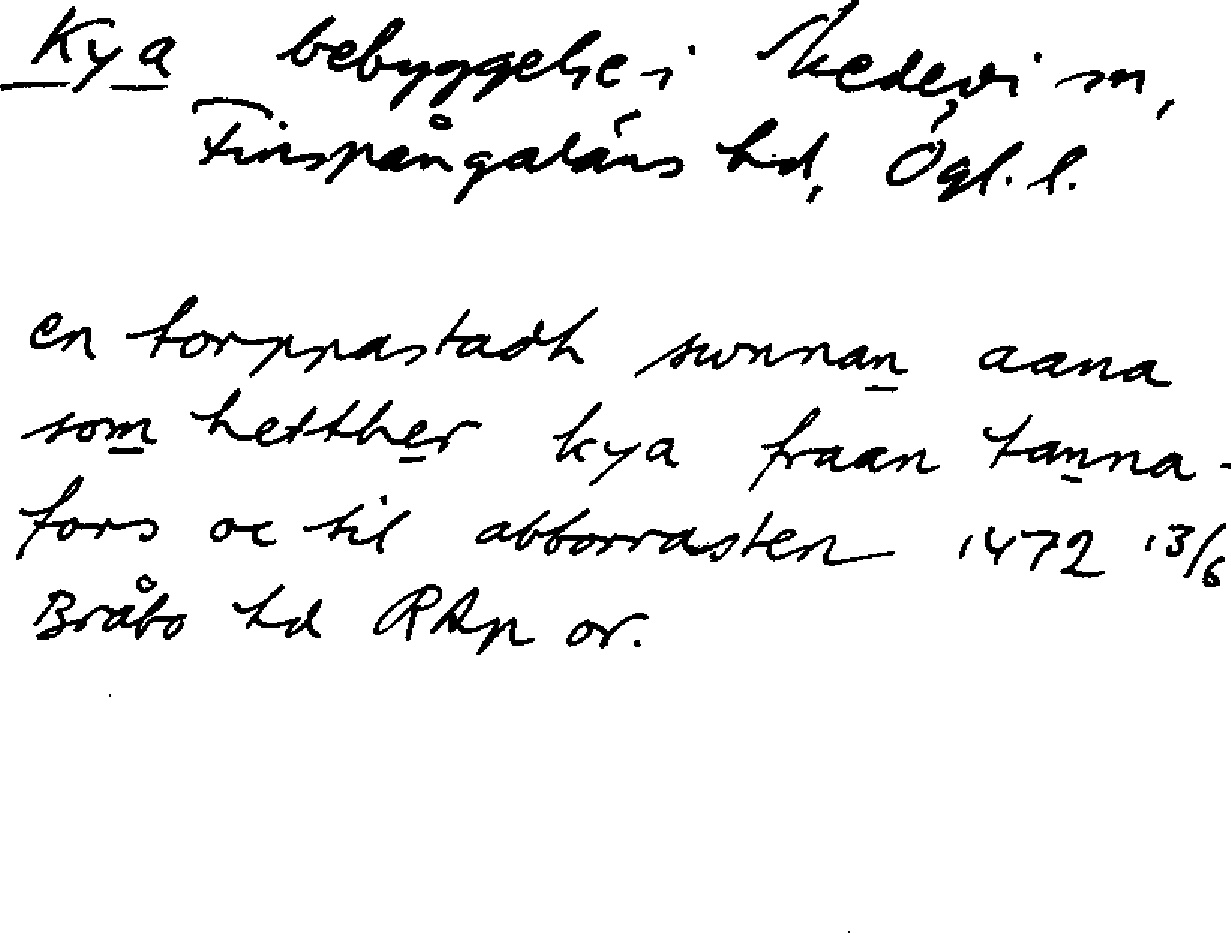 Kya bebyggelse i Hedevi sn,
Finspångaläns hd, Ögl. l.
en torppastadh swnnan aana
som hetther kya fraan tanna-
fors oc til abborrasten 1472 13/6
Bråbo hd RAp or.